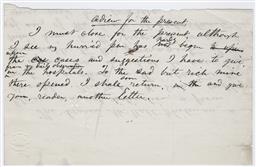 adieu for the present.
I must close for the present, although
I see my hurried pen has hardly begun
upon
the cases and suggestions I have to give
from my daily observation
in the hospitals. To the sad but rich mine
there opened I shall soon return, and give
you, reader, another letter.